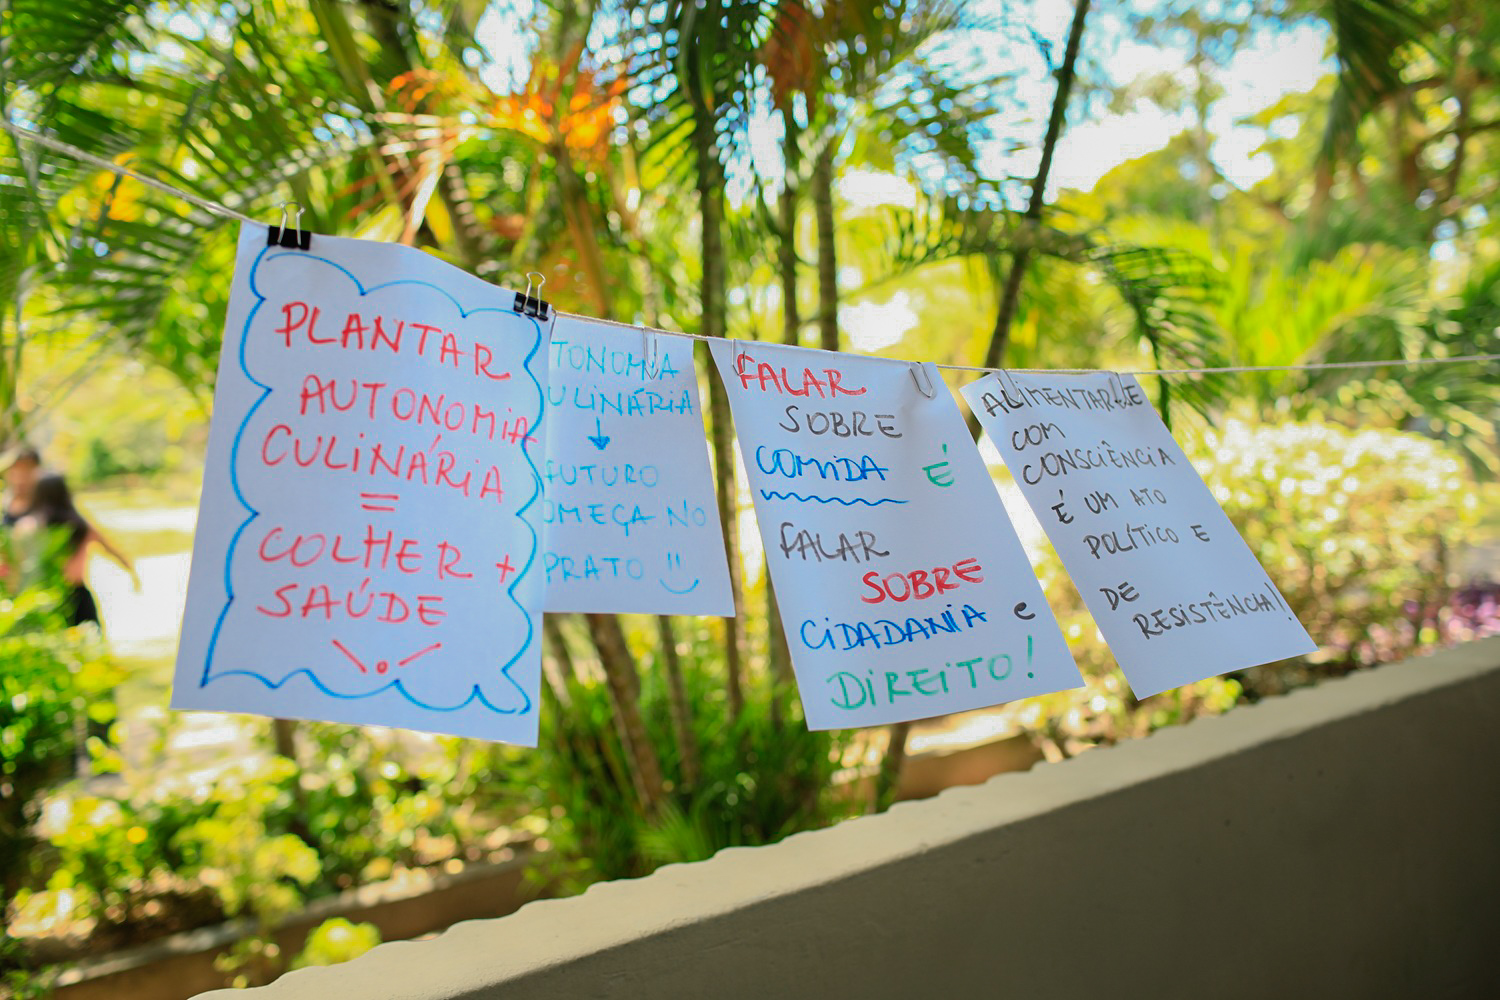 PLANTAR
AUTONOMIA
CULINÁRIA
=
COLHER +
SAÚDE
TONOMIA
ULINÁRIA
↓
FUTURO
OMEÇA NO
PRATO :)
FALAR
SOBRE
COMIDA É
FALAR
SOBRE
CIDADANIA e
DIREITO!
ALIMENTAR-SE
COM
CONSCIÊNCIA
É UM ATO
POLÍTICO E
DE
RESISTÊNCIA!